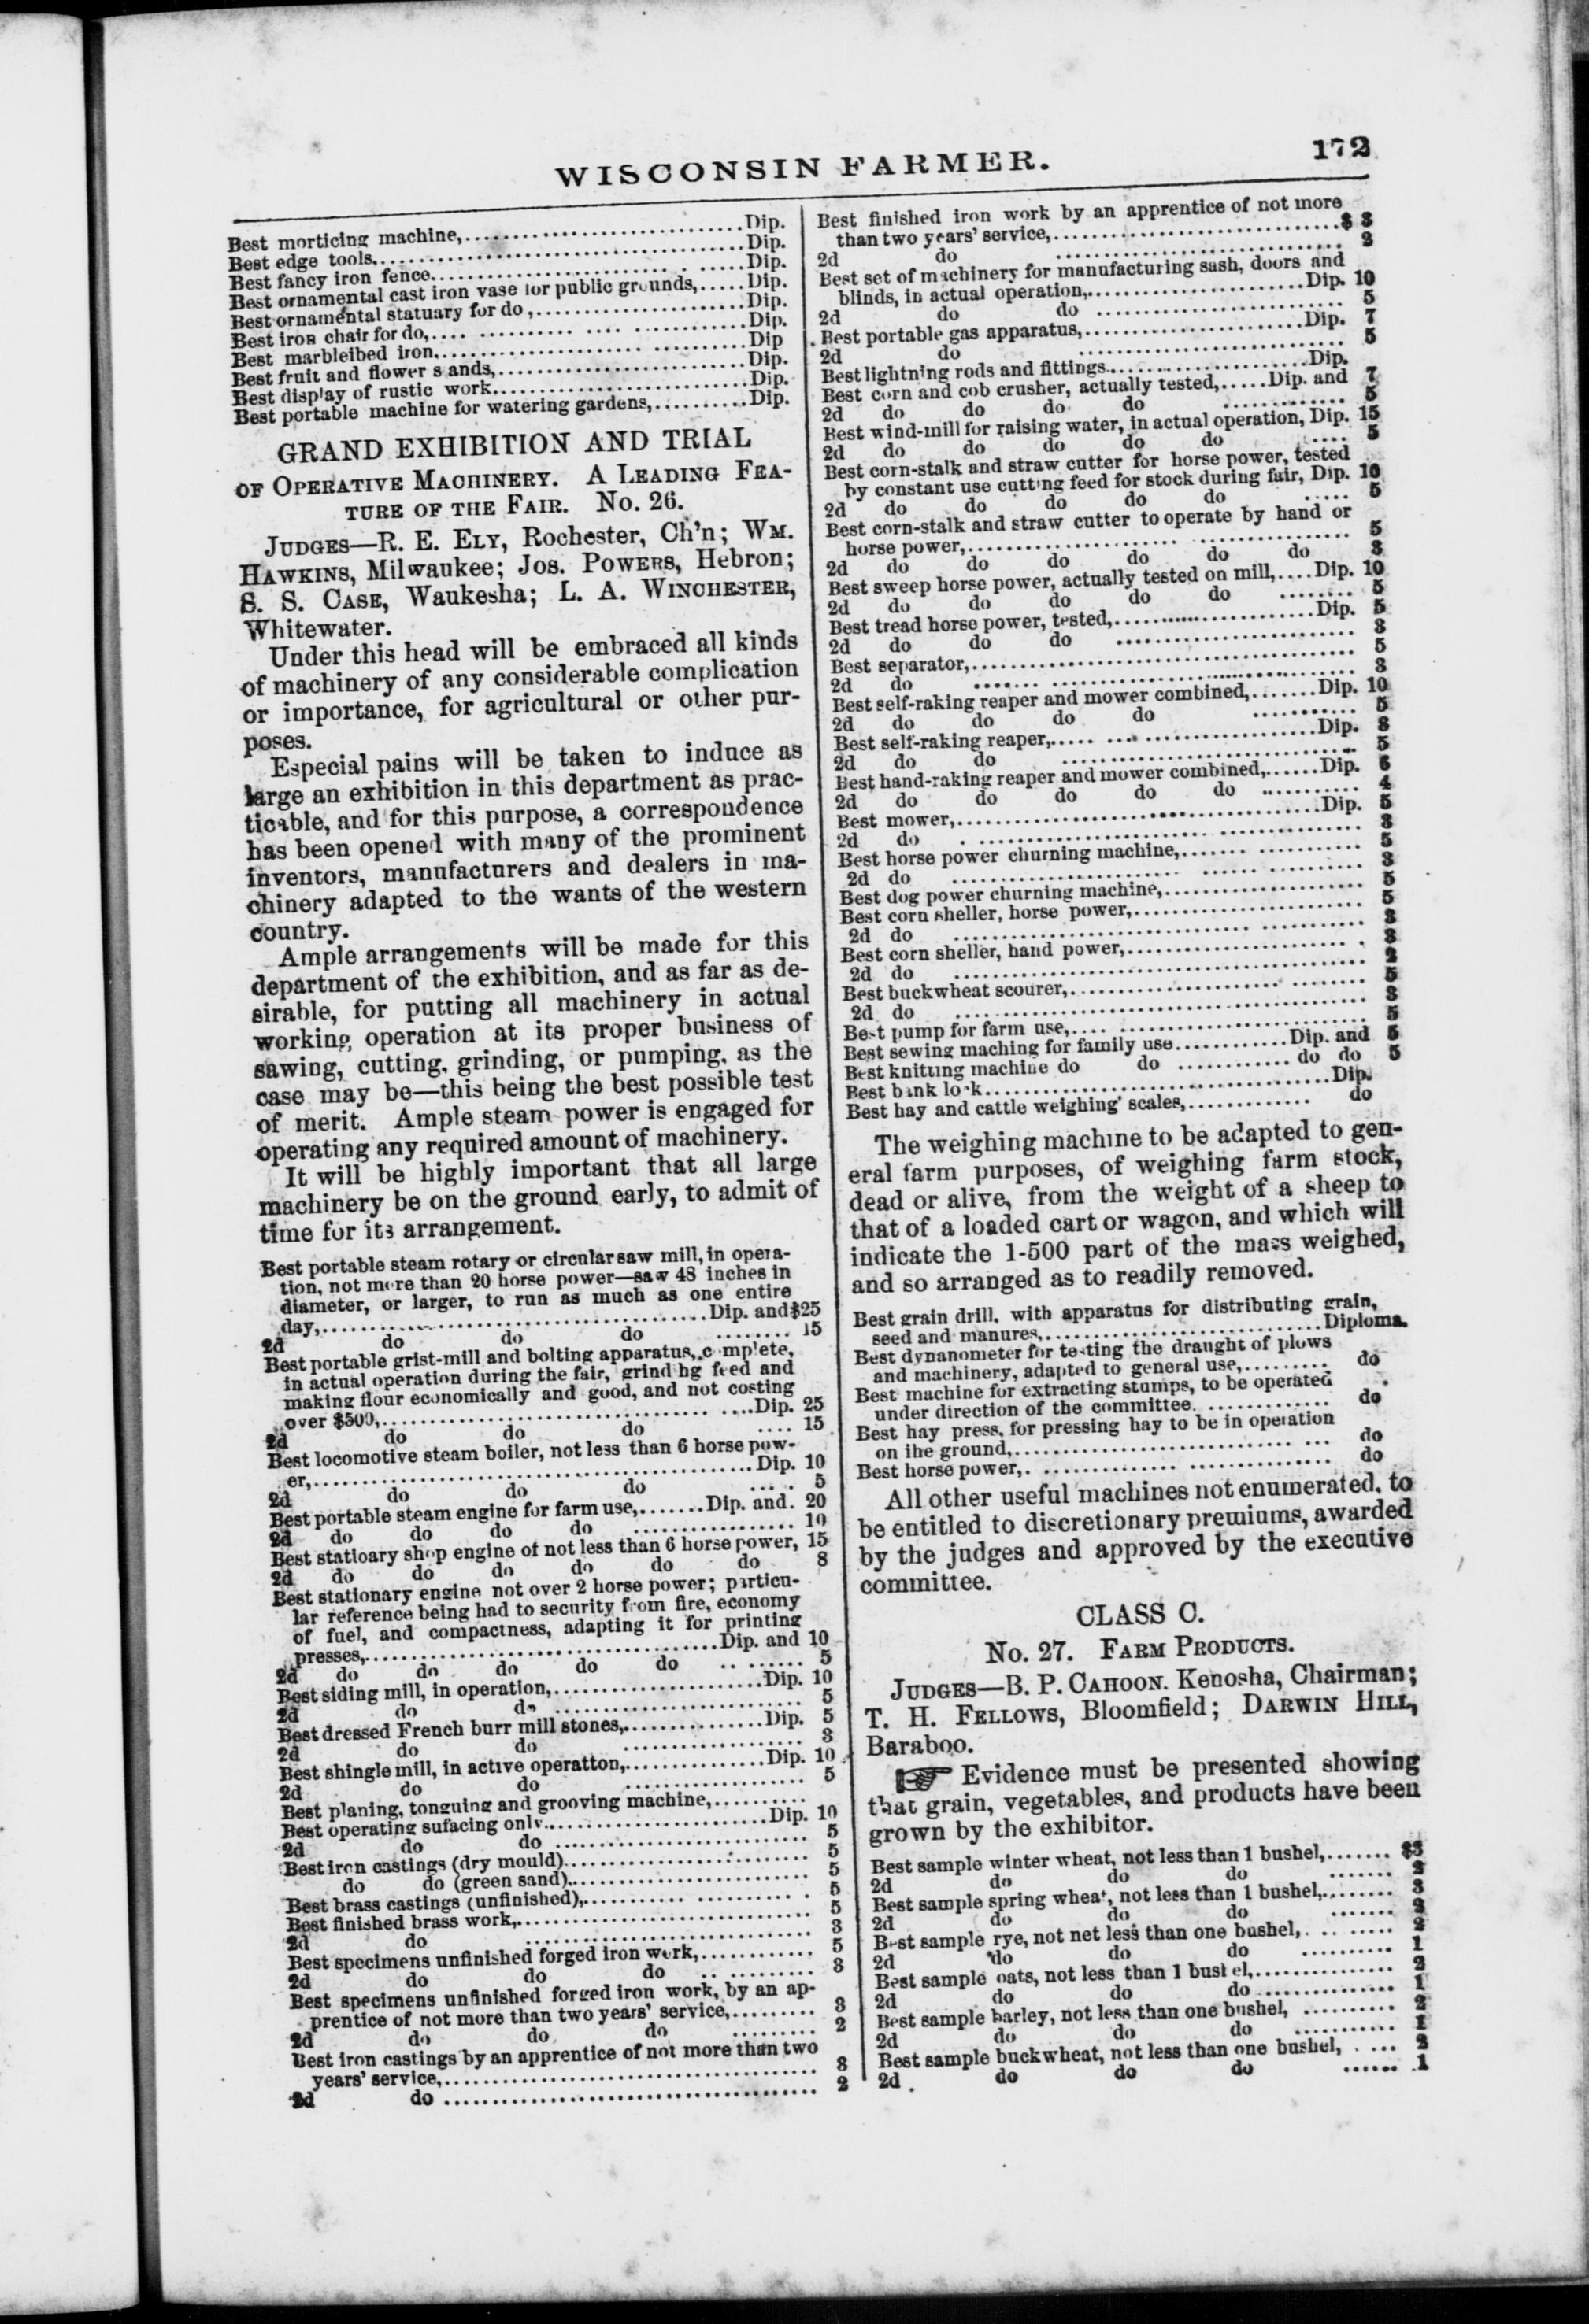 WISCONSIN FARMER.
172
Best morticing machine,..............................Dip.
Best edge tools,..............................Dip.
Best fancy iron fence..............................Dip.
Best ornamental cast iron vase for public grounds,.....Dip.
Best ornamental statuary for do,..............................Dip.
Best iron chair for do,..............................Dip.
Best marbleibed iron..............................Dip
Best fruit and flower s ands,..............................Dip.
Best display of rustic work..............................Dip.
Best portable machine for watering gardens,..........Dip.
GRAND EXHIBITION AND TRIAL
OF OPERATIVE MACHINERY. A LEADING FEA-
TURE OF THE FAIR. No. 26.
JUDGES—R. E. ELY, Rochester, Ch'n; WM.
HAWKINS, Milwaukee; JOS. POWERS, Hebron;
S. S. CASE, Waukesha; L. A. WINCHESTER,
Whitewater.
Under this head will be embraced all kinds
of machinery of any considerable complication
or importance, for agricultural or other pur-
poses.
Especial pains will be taken to induce as
large an exhibition in this department as prac-
ticable, and for this purpose, a correspondence
has been opened with many of the prominent
inventors, manufacturers and dealers in ma-
chinery adapted to the wants of the western
country.
Ample arrangements will be made for this
department of the exhibition, and as far as de-
sirable, for putting all machinery in actual
working operation at its proper business of
sawing, cutting, grinding, or pumping, as the
case may be—this being the best possible test
of merit. Ample steam power is engaged for
operating any required amount of machinery.
It will be highly important that all large
machinery be on the ground early, to admit of
time for its arrangement.
Best portable steam rotary or circular saw mill, in opera-
tion, not more than 20 horse power—saw 48 inches in
diameter, or larger, to run as much as one entire
day,..............................Dip. and $25
2d do do do ........ 15
Best portable grist-mill and bolting apparatus, c mplete,
in actual operation during the fair, grind ng feed and
making flour economically and good, and not costing
over $500,..............................Dip. 25
2d do do do .... 15
Best locomotive steam boiler, not less than 6 horse pow-
er,..............................Dip. 10
2d do do do .... 5
Best portable steam engine for farm use,.......Dip. and. 20
2d do do do do ................ 10
Best statioary shop engine of not less than 6 horse power, 15
2d do do do do do do 8
Best stationary engine not over 2 horse power; particu-
lar reference being had to security from fire, economy
of fuel, and compactness, adapting it for printing
presses,..............................Dip. and 10
2d do do do do do ........ 5
Best siding mill, in operation,......................Dip. 10
2d do do ........................ 5
Best dressed French burr mill stones,..............Dip. 5
2d do do .................. 3
Best shingle mill, in active operatton,..............Dip. 10
2d do do .................. 5
Best planing, tonguing and grooving machine,..........
Best operating sufacing only......................Dip. 10
2d do do ........................ 5
Best iron castings (dry mould)........................ 5
do do (green sand)........................ 5
Best brass castings (unfinished),...................... 5
Best finished brass work,.............................. 5
2d do .............................. 3
Best specimens unfinished forged iron work,............ 5
2d do do do ............ 3
Best specimens unfinished forged iron work, by an ap-
prentice of not more than two years' service,......... 3
2d do do do ......... 2
Best iron castings by an apprentice of not more than two
years' service,.............................. 3
2d do .............................. 2
Best finished iron work by an apprentice of not more
than two years' service,..............................$ 3
2d do .............................. 2
Best set of machinery for manufacturing sash, doors and
blinds, in actual operation,......................Dip. 10
2d do do ........................ 5
Best portable gas apparatus,......................Dip. 7
2d do ........................ 5
Best lightning rods and fittings......................Dip.
Best corn and cob crusher, actually tested,.....Dip. and 7
2d do do do do ............. 5
Best wind-mill for raising water, in actual operation, Dip. 15
2d do do do do do .... 5
Best corn-stalk and straw cutter for horse power, tested
by constant use cutting feed for stock during fair, Dip. 10
2d do do do do do ..... 5
Best corn-stalk and straw cutter to operate by hand or
horse power,.............................. 5
2d do do do do do do 3
Best sweep horse power, actually tested on mill,....Dip. 10
2d do do do do do ........ 5
Best tread horse power, tested,......................Dip. 5
2d do do do ........................ 3
Best separator,.............................. 5
2d do .............................. 3
Best self-raking reaper and mower combined,.......Dip. 10
2d do do do do ........... 5
Best self-raking reaper,..............................Dip. 8
2d do do .............................. 5
Best hand-raking reaper and mower combined,......Dip. 6
2d do do do do do ........... 4
Best mower,..............................Dip. 5
2d do .............................. 3
Best horse power churning machine,................... 5
2d do .............................. 3
Best dog power churning machine,..................... 5
Best corn sheller, horse power,........................ 5
2d do .............................. 3
Best corn sheller, hand power,........................ 3
2d do .............................. 2
Best buckwheat scourer,.............................. 5
2d do .............................. 3
Best pump for farm use,.............................. 5
Best sewing maching for family use............Dip. and 5
Best knitting machine do do ............ do do 5
Best bank lo k..............................Dip.
Best hay and cattle weighing scales,............. do
The weighing machine to be adapted to gen-
eral farm purposes, of weighing farm stock,
dead or alive, from the weight of a sheep to
that of a loaded cart or wagon, and which will
indicate the 1-500 part of the mass weighed,
and so arranged as to readily removed.
Best grain drill, with apparatus for distributing grain,
seed and manures,..............................Diploma.
Best dynanometer for testing the draught of plows
and machinery, adapted to general use,......... do
Best machine for extracting stumps, to be operated
under direction of the committee. .............. do
Best hay press, for pressing hay to be in operation
on the ground,.............................. do
Best horse power,.............................. do
All other useful machines not enumerated, to
be entitled to discretionary premiums, awarded
by the judges and approved by the executive
committee.
CLASS C.
No. 27. FARM PRODUCTS.
JUDGES—B. P. CAHOON. Kenosha, Chairman;
T. H. FELLOWS, Bloomfield; DARWIN HILL,
Baraboo.
☞ Evidence must be presented showing
that grain, vegetables, and products have been
grown by the exhibitor.
Best sample winter wheat, not less than 1 bushel,....... $3
2d do do do ....... 2
Best sample spring wheat, not less than 1 bushel,........ 3
2d do do do ....... 2
Best sample rye, not net less than one bushel,.......... 2
2d do do do .......... 1
Best sample oats, not less than 1 bushel,............... 2
2d do do do ............... 1
Best sample barley, not less than one bushel, .......... 2
2d do do do ........... 1
Best sample buckwheat, not less than one bushel, ..... 2
2d. do do do ...... 1